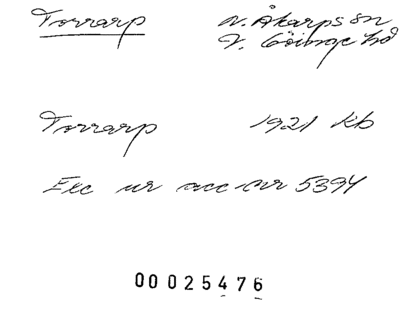 Torrarp N. Åkarps sn
V. Göinge hd
Torrarp 1921 kb
Exc ur acc nr 5394
00025476